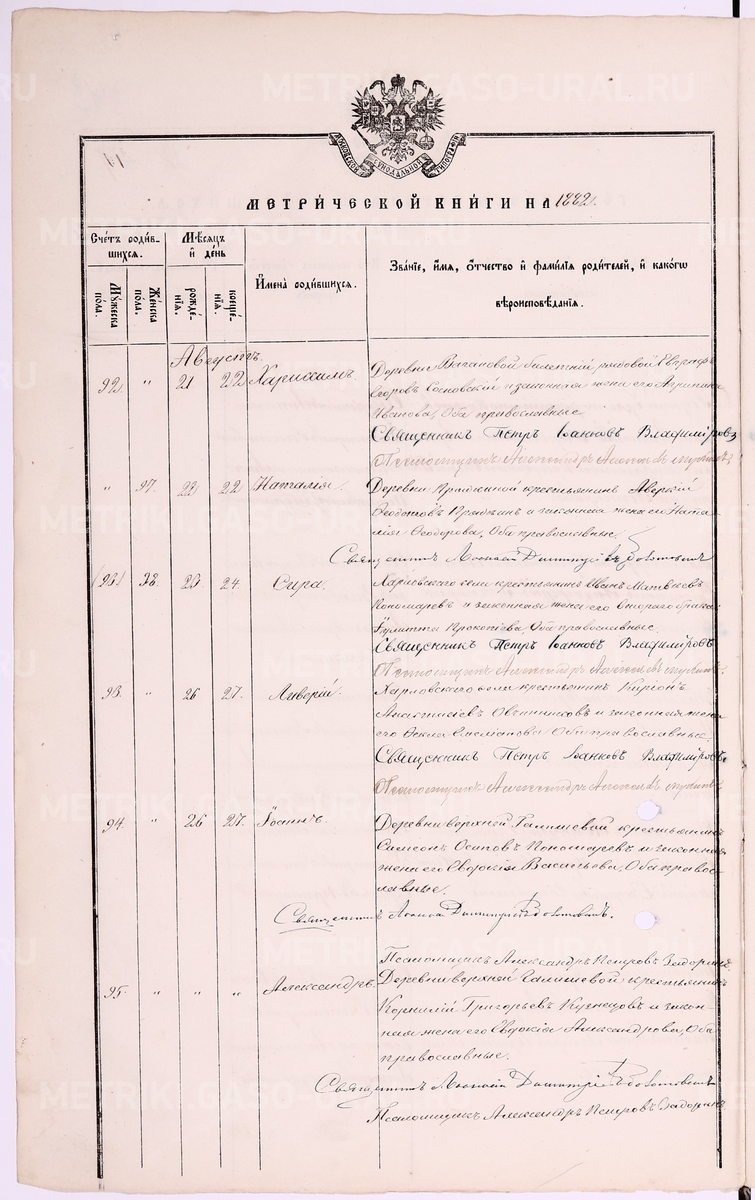 МОСКОВСКОЙ СУНОДАЛЬНОЙ ТИПОГРАФІИ
МЕТРИ́ЧЕСКОЙ КНИ́ГИ НА 1882 г.
Сче́тъ роди́в-
шихся.
Мѣ́сяцъ
и́ де́нь
Имена̀ роди́вшихся.
Зва́ніе, и́мя, о́тчество и́ фами́лія роди́телей, и́ како́гѡ
вѣроисповѣ́данія.
Мꙋ́жеска
по́ла.
Же́нска
по́ла.
рожде́-
нія.
креще́-
нія.
Августъ.
92. " 21 22 Харитамъ. Деревни Вагановой билетный рядовой Евграфъ
Егоровъ Сосновскій и законная жена его Агрипина
Иванова, Оба православные
Священникъ Петръ Іоанновъ Владиміровъ
Псаломщикъ Александръ
" 37. 22 22 Наталія. Деревни крестьянинъ Аверкій
Ѳедотовъ и законная жена его Ната-
лія Ѳеодорова, Оба православные.
Священникъ Димитрій
(93.) 38. 23 24. Сира. Харловскаго села крестьянинъ Иванъ Матвѣевъ
Пономаревъ и законная жена его втораго брака
Іулитта Прокопіева, Оба православные.
Священникъ Петръ Іоанновъ Владиміровъ
Псаломщикъ Александръ
93. " 26 27. Ливерій. Харловскаго села крестьянинъ Киріонъ
Анастасіевъ Овчинниковъ и законная жена
его Ѳекла Оба православные.
Священникъ Петръ Іоанновъ Владиміровъ
Псаломщикъ Александръ
94. " 26 27. Іоаннъ. Деревни верхней Галишевой крестьянинъ
Самсонъ Осиповъ Пономаревъ и законная
жена его Евдокія Васильева, Оба право-
славные.
Священникъ Димитрій
Псаломщикъ Александръ Петровъ Задоринъ
95. " " " Александръ. Деревни верхней Галишевой крестьянинъ
Корнилій Григорьевъ Кузнецовъ и закон-
ная жена его Евдокія Александрова, Оба
православные.
Священникъ Димитрій
Псаломщикъ Александръ Петровъ Задоринъ
METRIKI.GASO-URAL.RU